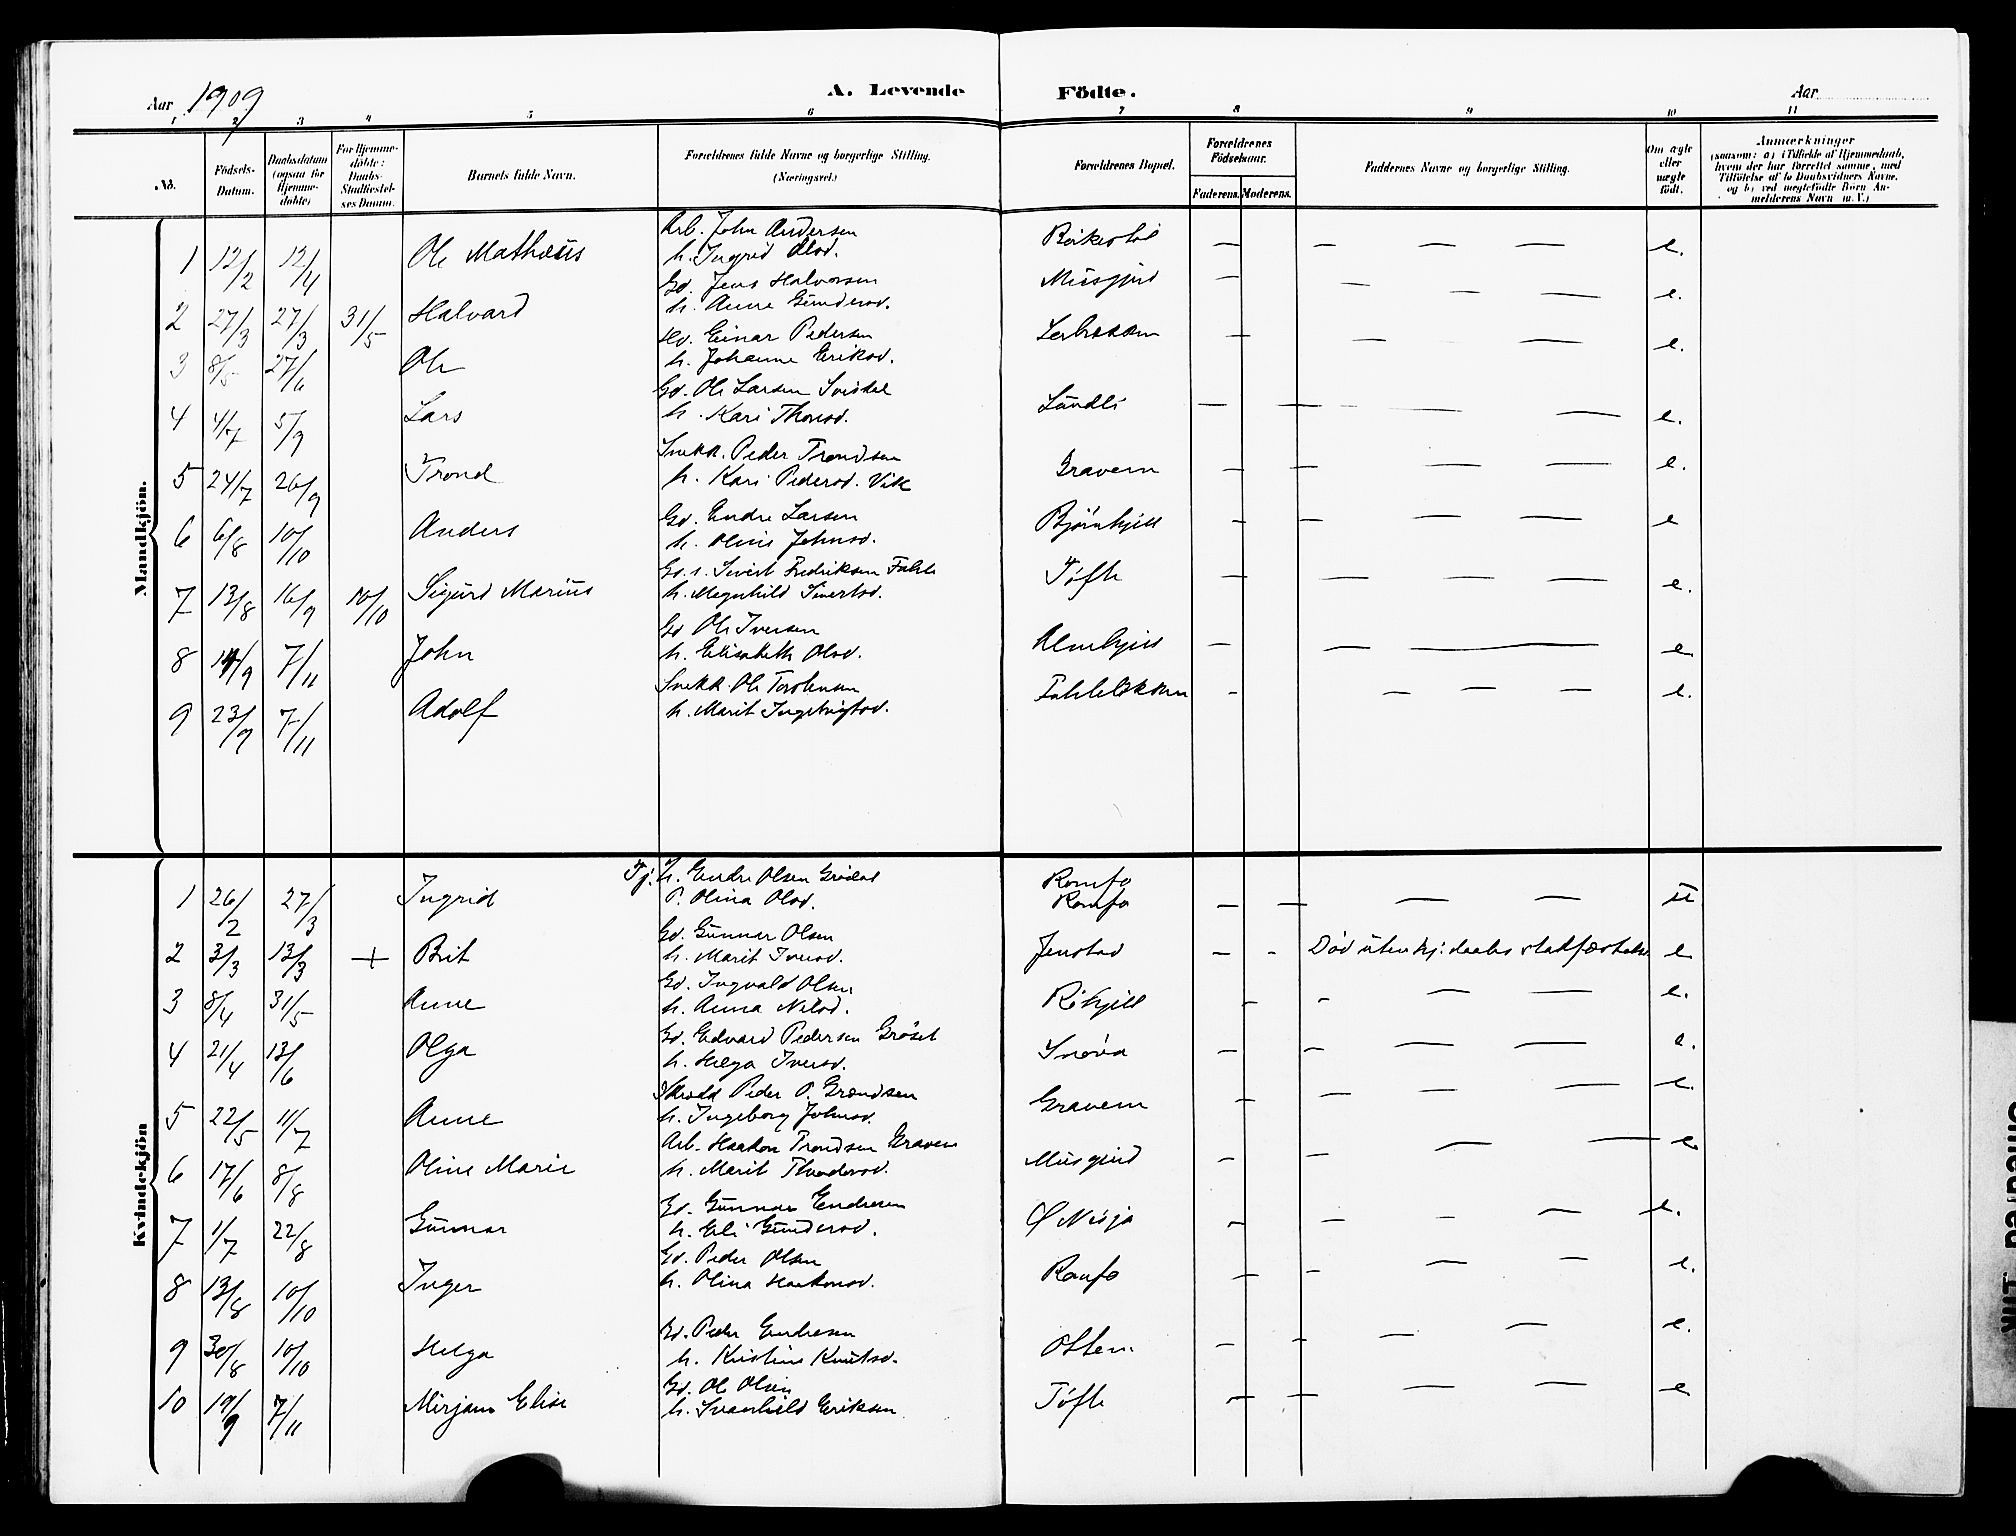 Aar 1909
A. Levende Födte.
Aar
1 2 3 4 5 6 7 8 9 10 11
No.
Födsels-Datum.
Daabsdatum (ogsaa for Hjemmedöbte)
For Hjemmedöbte: Daabs-Stadfæstelses Datum.
Barnets fulde Navn.
Forældrenes fulde Navne og borgerlige Stilling. (Næringsvei.)
Forældrenes Bopæl.
Forældrenes Födselsaar.
Faderens. Moderens.
Faddernes Navne og borgerlige Stilling.
Om ægte eller uægte födt.
Anmærkninger
(saasom: a) i Tilfælde af Hjemmedaab, hvem der har forrettet samme, med Tilföielse af to Daabsvidners Navne, og b) ved uægtefödte Börn Anmelderens Navn m. V.)
Mandkjön.
Arb. John Andersen
1 12/2 12/4 Ole Mathæus h. Ingrid Olsd. — — — — e.
Gd. Jens Halvorsen Musgjerd
2 27/3 27/3 31/5 Halvard h. Anne Gundersd. — — — — e.
Einar Pedersen
3 8/5 27/6 Ole h. Johanne Eriksd. — — — e.
Gd. Ole Larsen Svisdal
4 4/7 5/9 Lars h. Kari Thorsd. Lundli — — — — e.
Snekk. Peder Trondsen
5 24/7 26/9 Trond h. Kari Pedersd. Vik Gravem — — — — e.
Gd. Endre Larsen
6 6/8 10/10 Anders h. Oline Johnsd. Bjørnhjell — — — — e
Gd. s. Sivert Fredriksen Fahle
7 13/8 16/9 10/10 Sigurd Marius h. Magnhild Sivertsd. Tøfte — — — — e.
Gd Ole Iversen
8 14/9 7/11 John h. Elisabeth Olsd. Almhjell — — — e
Snekk. Ole Torstensen
9 23/9 7/11 Adolf h. Marit Ingebrigtsd. — — — — e.
Kvindekjön
Tj. U. Endre Olsen Grødal Romfo
1 26/2 27/3 Ingrid P. Olina Olsd. Romfo — — — — u
Gd. Gunnar Olsen
2 3/3 13/3 + Brit h. Marit Iversd. Jenstad — - Død uten kj. daabs stadfæstelse e
Gd. Ingvald Olsen
3 8/4 31/5 Anne h. Anna Nilsd. Røhjell — - — — e.
Gd. Edvard Pedersen Grøset
4 21/4 13/6 Olga h. Helga Iversd. Snøva — — — — e.
Peder O. Trondsen
5 22/5 11/7 Anne h. Ingeborg Johnsd. Gravem — — — — e.
Arb. Haakon Trondsen Gravem
6 17/6 8/8 Oline Marie h. Marit Thordersd. Musgjerd — — — — e
Gd. Gunnar Endresen
7 1/7 22/8 Gunnar h. Eli Gundersd. Ø Nisja — — — — e.
Gd. Peder Olsen
8 13/8 10/10 Inger h. Olina Haakonsd. Romfo — — — — e.
Gd. Peder Endresen
9 30/8 10/10 Helga h. Kristine Knutsd. Otten — — — — e.
Gd. Ole Olsen
10 19/9 7/11 Mirjam Elise h. Svanhild Eriksen Tøfte — — — — e